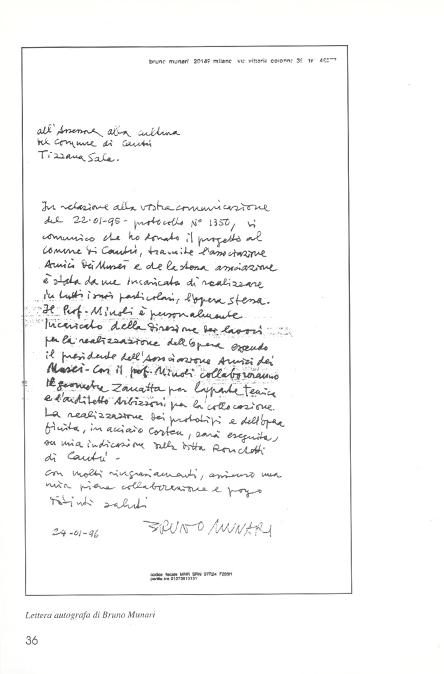 bruno munari 20149 milano via vittoria colonna 39 tel
all'Assessore alla cultura
del comune di Cantù
Tiziana Sala.
In relazione alla vostra comunicazione
del 22-01-96 - protocollo N° 1350, vi
comunico che ho donato il progetto al
comune di Cantù, tramite l'associazione
Amici dei Musei e che la stessa associazione
è stata da me incaricata di realizzare
in tutti i suoi particolari, l'opera stessa.
Il Prof. Minoli è personalmente
incaricato della direzione dei lavori
per la realizzazione dell'opera essendo
il presidente dell'Associazione Amici dei
Musei - Con il prof. Minoli collaboreranno
il geometra Zanatta per la parte tecnica
e l'architetto per la collocazione.
La realizzazione dei prototipi e dell'opera
finita, in acciaio Corten, sarà eseguita,
su mia indicazione dalla ditta Ronchetti
di Cantù -
con molti ringraziamenti, assicuro una
mia piena collaborazione e porgo
distinti saluti
24-01-96 BRUNO MUNARI
codice fiscale MNR BRN 07R24 F205H
partita iva
Lettera autografa di Bruno Munari
36